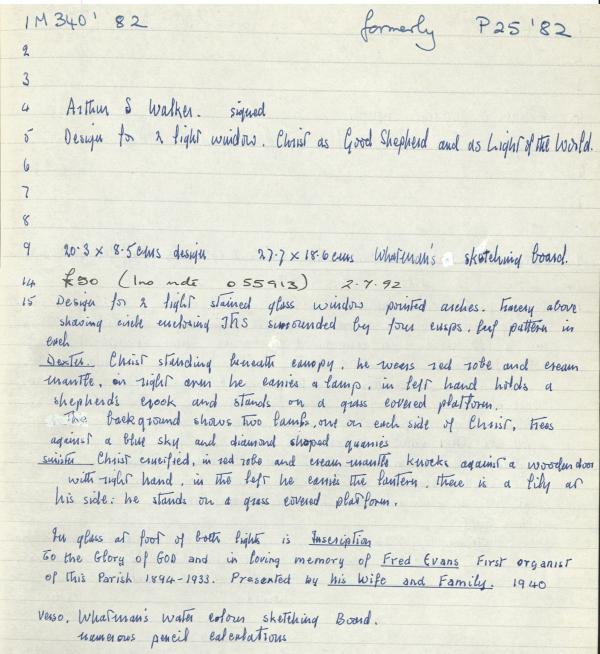 1M340' 82 formerly P25 '82
2
3
4 Arthur S Walker. signed
5 Design for 2 light window. Christ as Good Shepherd and as Light of the World.
6
7
8
9 20.3 x 8.5 cms design 27.7 x 18.6 cms Whatman's sketching board.
14 £50 (Ino note 055913) 2.7.92
15 Design for 2 light stained glass window pointed arches. Tracery above
showing circle enclosing IHS surrounded by four cusps. leaf pattern in
each
Dexter. Christ standing beneath canopy. he wears red robe and cream
mantle, on right arm he carries a lamp, in left hand holds a
shepherd's crook and stands on a grass covered platform.
The background shows two lambs, one on each side of Christ, trees
against a blue sky and diamond shaped quarries
sinister Christ crucified, in red robe and cream mantle knocks against a wooden door
with right hand, in the left he carries the lantern, there is a lily at
his side: he stands on a grass covered platform.
In glass at foot of both lights is Inscription
To the Glory of GOD and in loving memory of Fred Evans First organist
of this Parish 1894-1933. Presented by his Wife and Family. 1940
Verso. Whatman's water colour sketching Board.
numerous pencil calculations